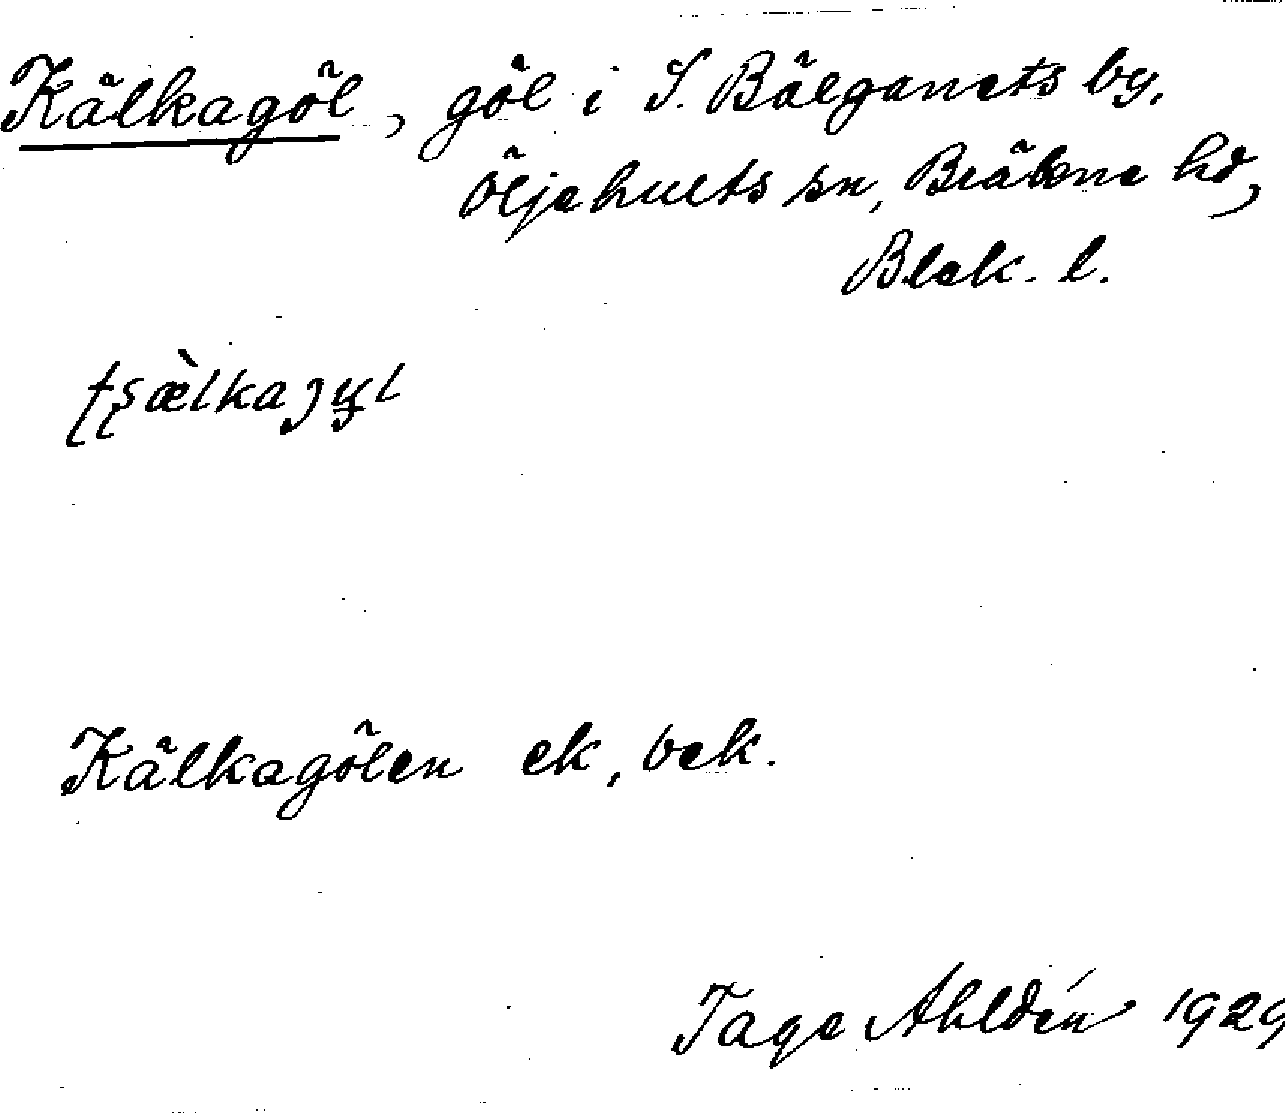 Kälkagöl, göl i S. Bälganets by.
Öljehults sn, Bräkne hd,
Blek. l.
Kälkagölen ek, bek.
Tage Ahldén 1929